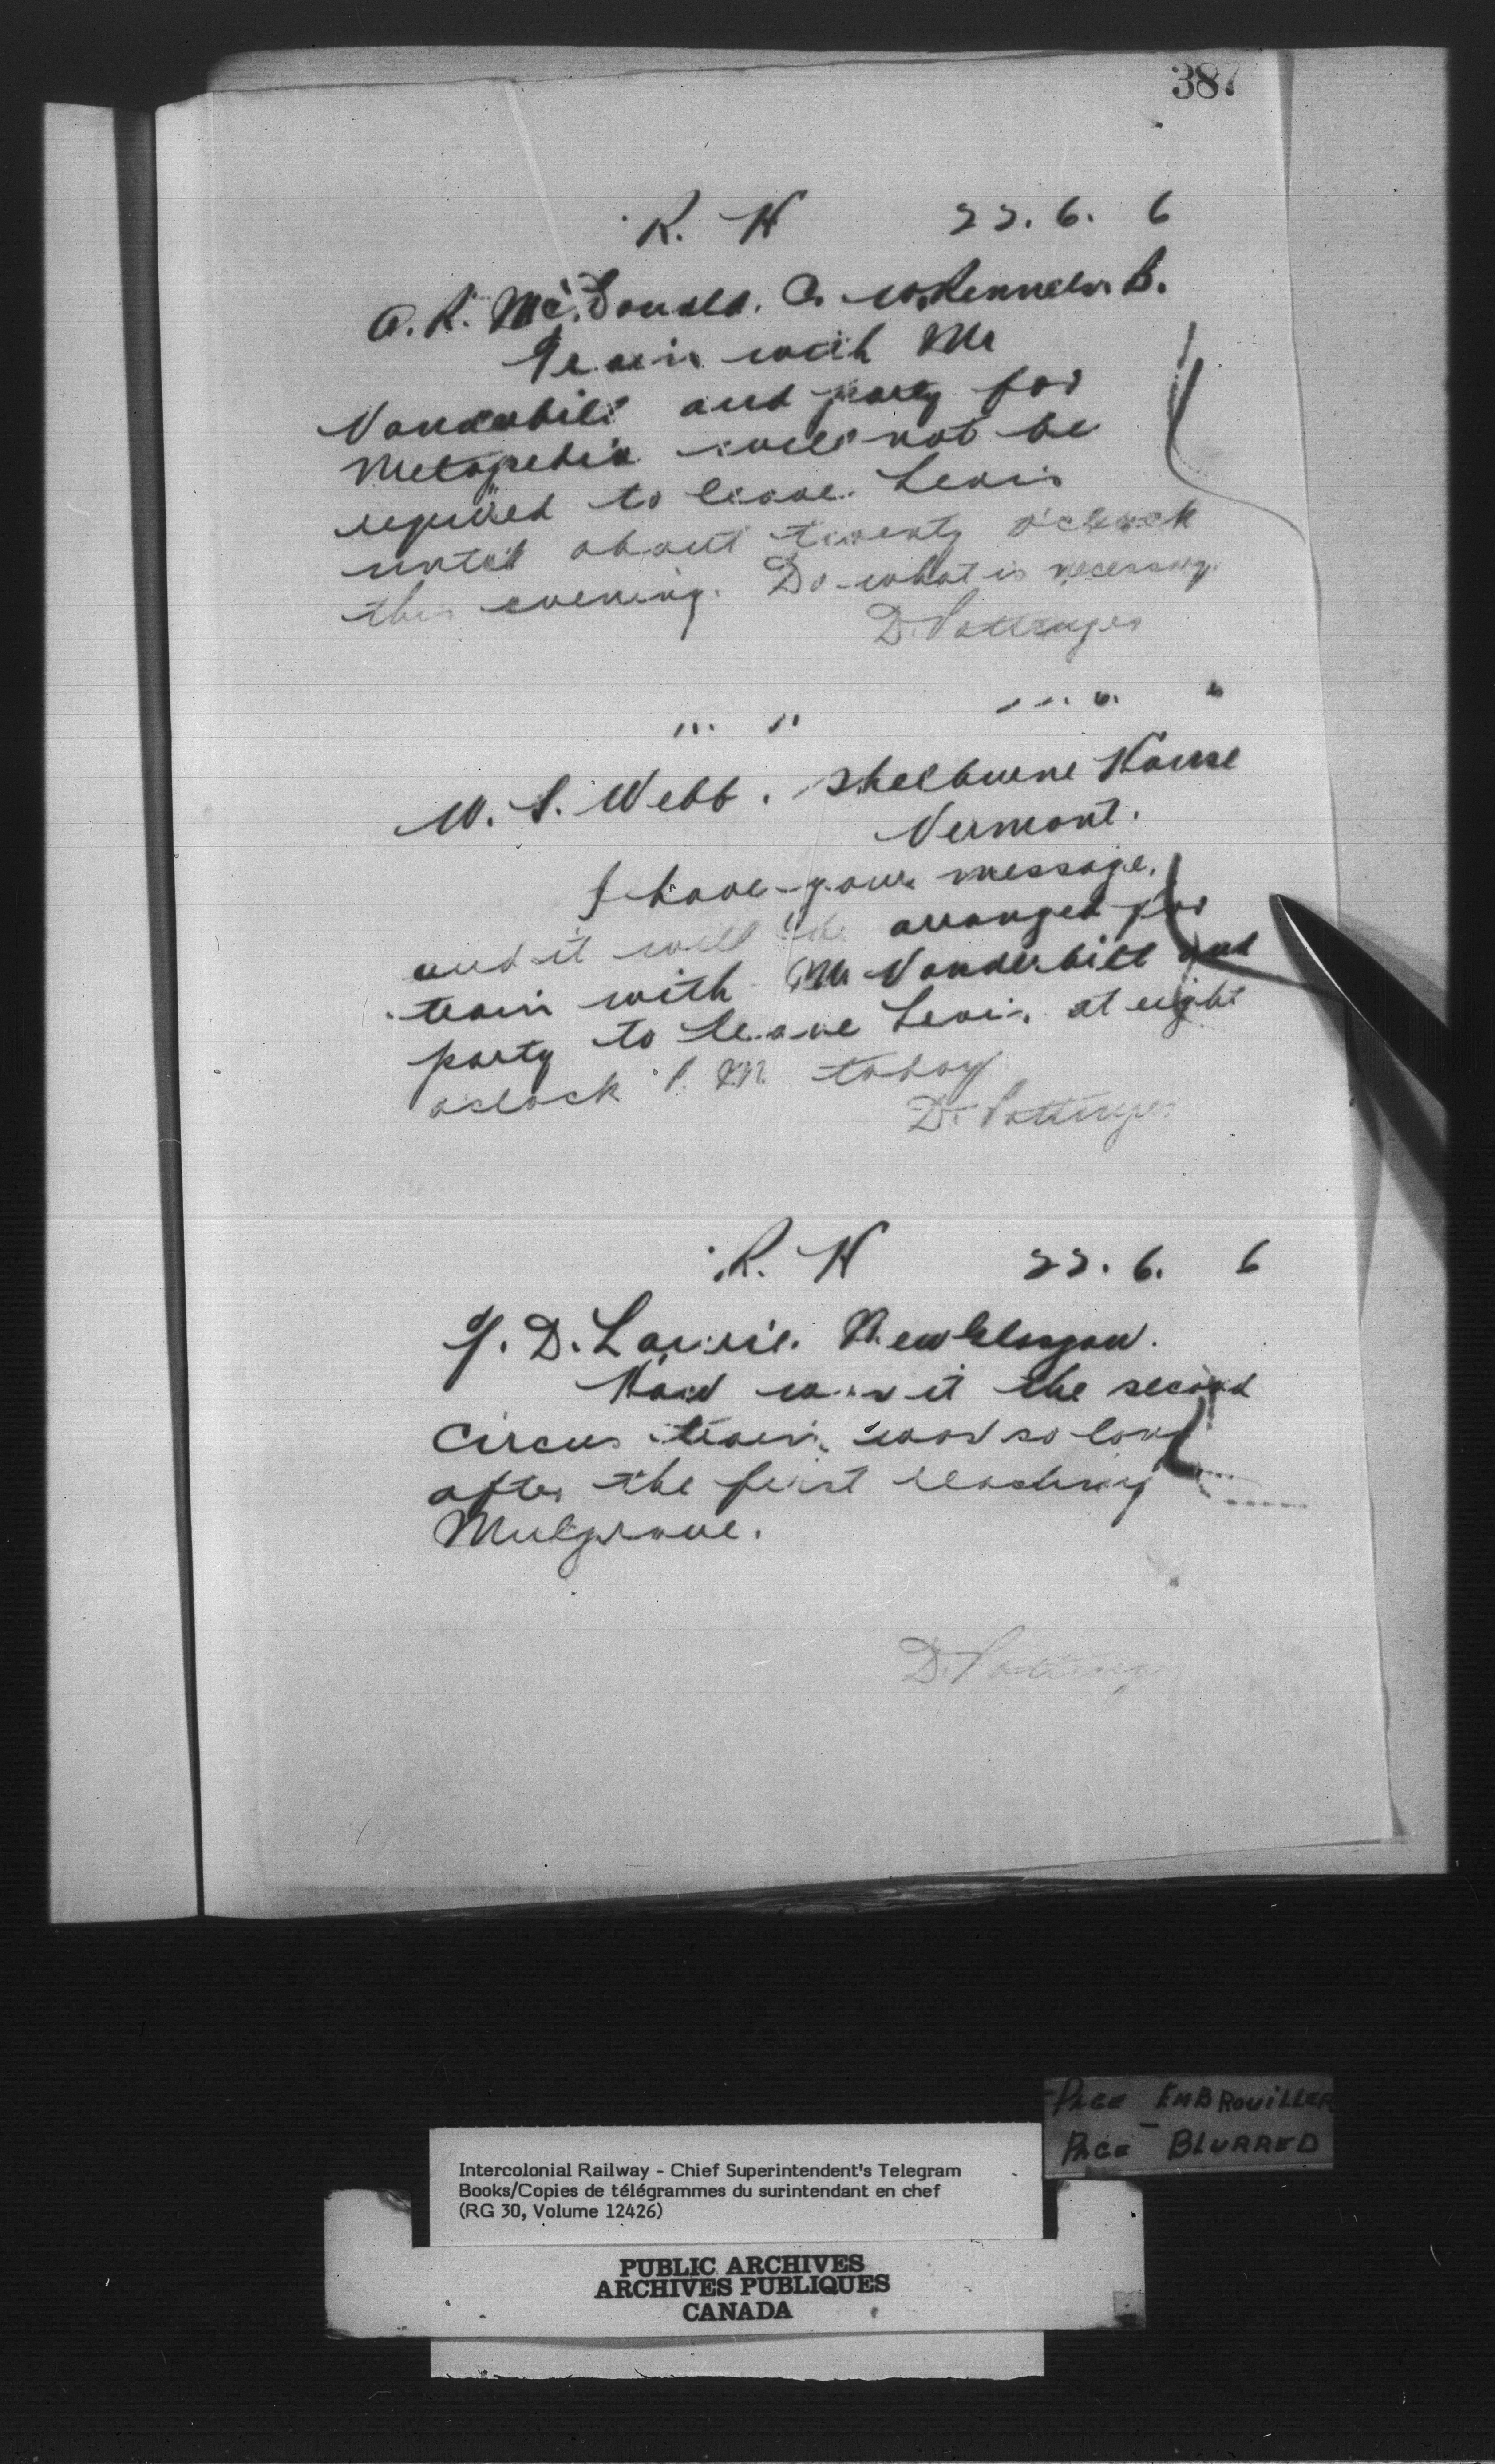 387
R. H 22. 6. 6
A. R. McDonald. C. W. Kennedy. B.
Train with Mr
Vanderbilt and party for
Metapedia will not be
required to leave Levis
until about twenty o'clock
this evening. Do what is necessary.
D. Pottinger
" " " " 6. 6
W. S. Webb. Shelburne House
Vermont.
I have your message,
and it will be arranged for
train with Mr Vanderbilt and
party to leave Levis at eight
oclock P. M today
D. Pottinger
R. H 22. 6. 6
Y. D. Laurie. New Glasgow.
How was it the second
Circus train was so long
after the first reaching
Mulgrave.
D. Pottinger
PAGE EMBROUILLER
PAGE BLURRED
Intercolonial Railway - Chief Superintendent's Telegram
Books/Copies de télégrammes du surintendant en chef
(RG 30, Volume 12426)
PUBLIC ARCHIVES
ARCHIVES PUBLIQUES
CANADA